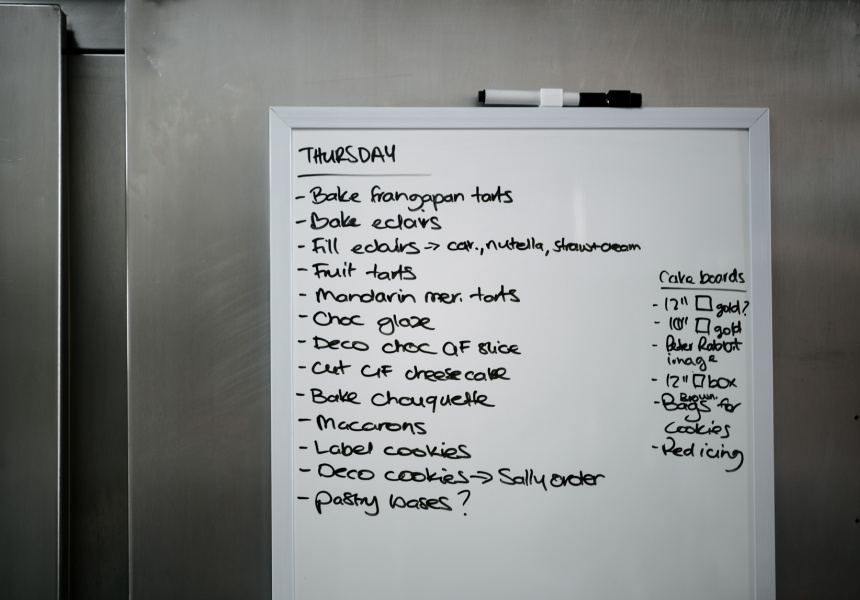 THURSDAY
- Bake frangapan tarts
- Bake eclairs
- Fill eclairs → car., nutella, straw+cream
- Fruit tarts
- Mandarin mer. tarts
- Choc glaze
- Deco choc GF slice
- Cut GF cheesecake
- Bake Chouquette
- Macarons
- Label cookies
- Deco cookies → Sally order
- Pastry bases?
Cake boards
- 12" □ gold?
- 10" □ gold
- Peter Rabbit
image
- 12" □ box
Brown
- Bags for
Cookies
- Red icing